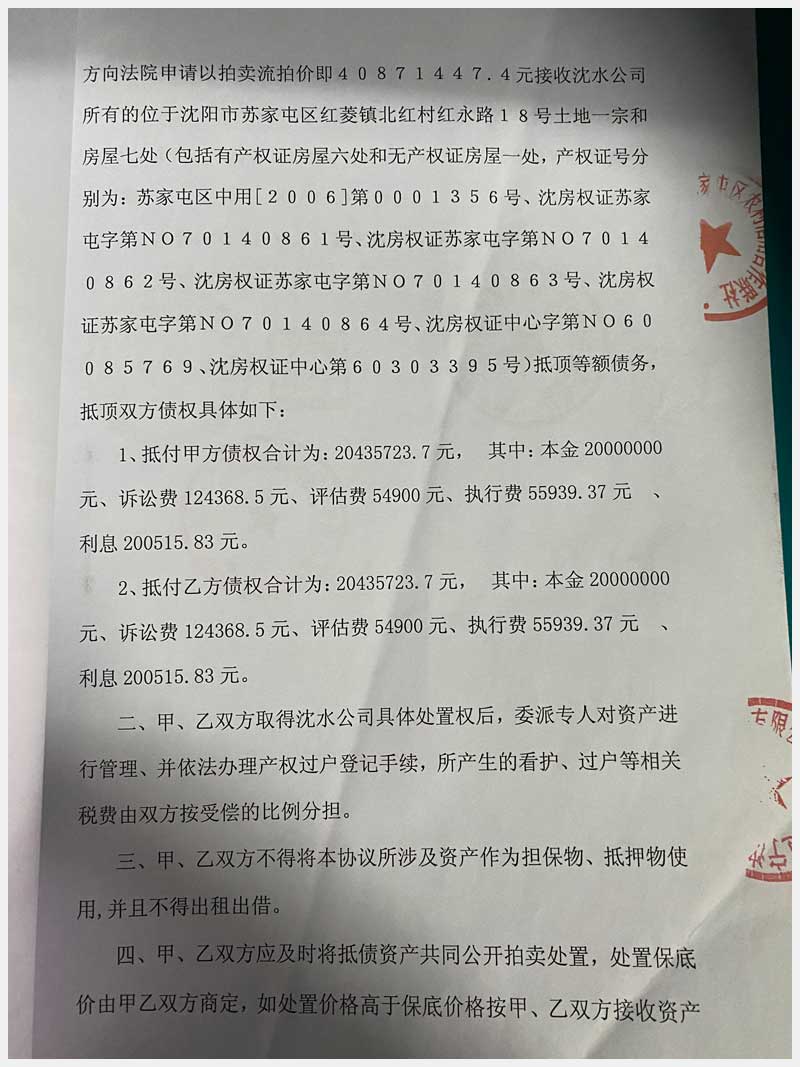 方向法院申请以拍卖流拍价即40871447.4元接收沈水公司
所有的位于沈阳市苏家屯区红菱镇北红村红永路18号土地一宗和
房屋七处（包括有产权证房屋六处和无产权证房屋一处，产权证号分
别为：苏家屯区中用[2006]第0001356号、沈房权证苏家
屯字第NO70140861号、沈房权证苏家屯字第NO7014
0862号、沈房权证苏家屯字第NO70140863号、沈房权
证苏家屯字第NO70140864号、沈房权证中心字第NO60
085769、沈房权证中心第60303395号）抵顶等额债务，
抵顶双方债权具体如下：
1、抵付甲方债权合计为：20435723.7元， 其中：本金20000000
元、诉讼费124368.5元、评估费54900元、执行费55939.37元 、
利息200515.83元。
2、抵付乙方债权合计为：20435723.7元， 其中：本金20000000
元、诉讼费124368.5元、评估费54900元、执行费55939.37元 、
利息200515.83元。
二、甲、乙双方取得沈水公司具体处置权后，委派专人对资产进
行管理、并依法办理产权过户登记手续，所产生的看护、过户等相关
税费由双方按受偿的比例分担。
三、甲、乙双方不得将本协议所涉及资产作为担保物、抵押物使
用,并且不得出租出借。
四、甲、乙双方应及时将抵债资产共同公开拍卖处置，处置保底
价由甲乙双方商定，如处置价格高于保底价格按甲、乙双方接收资产
家屯区农村信用合作联社
有限公